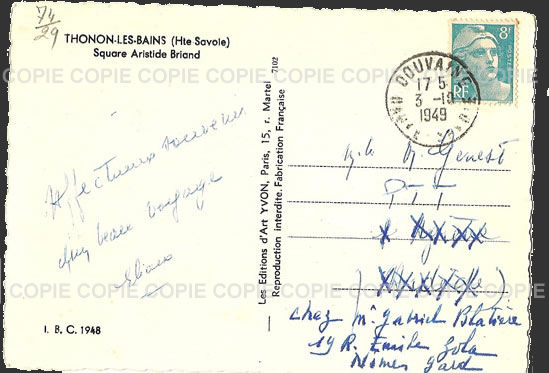 74
29
THONON-LES-BAINS (Hte-Savoie)
Square Aristide Briand
COPIE COPIE COPIE COPIE COPIE COPIE COPIE COPIE
Affectueux souvenir
d'un beau voyage
I. B. C. 1948
Les Editions d'Art YVON, Paris, 15, r. Martel
Reproduction interdite. Fabrication Française
7102
8F
RF
DOUVAINE
17 5
3 -19
1949
Genest
P.T.T.
COPIE COPIE COPIE COPIE COPIE COPIE COPIE COPIE
chez Mr Gabriel Blatière
19 R. Emile Zola
Nimes Gard
COPIE COPIE COPIE COPIE COPIE COPIE COPIE COPIE